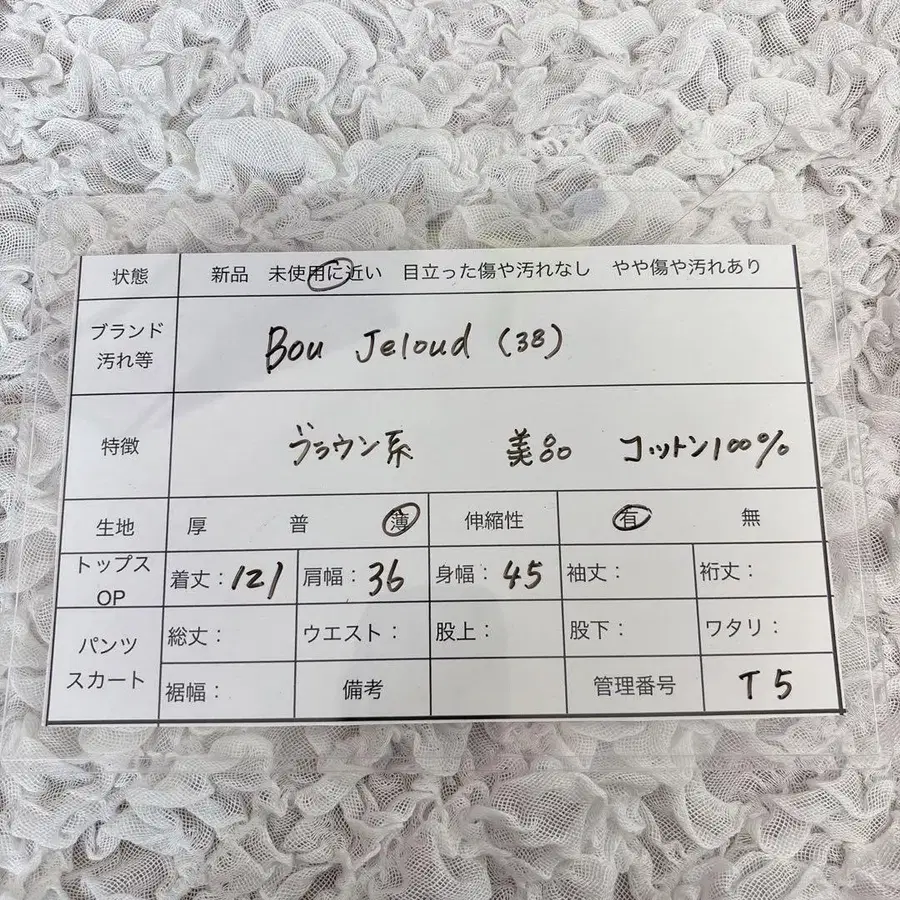 状態 新品 未使用に近い 目立った傷や汚れなし やや傷や汚れあり
ブランド
汚れ等
Bou Jeloud (38)
特徴 ブラウン系 美品 コットン100%
生地 厚 普 薄 伸縮性 有 無
トップス
OP
着丈：121 肩幅：36 身幅：45 袖丈： 裄丈：
パンツ
スカート
総丈： ウエスト： 股上： 股下： ワタリ：
裾幅： 備考 管理番号 T5